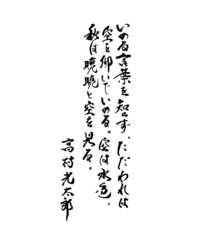 いのる言葉を知らず、ただわれは
空を仰いでいのる。空は水色、
秋は喨喨と空に鳴る。
高村光太郎